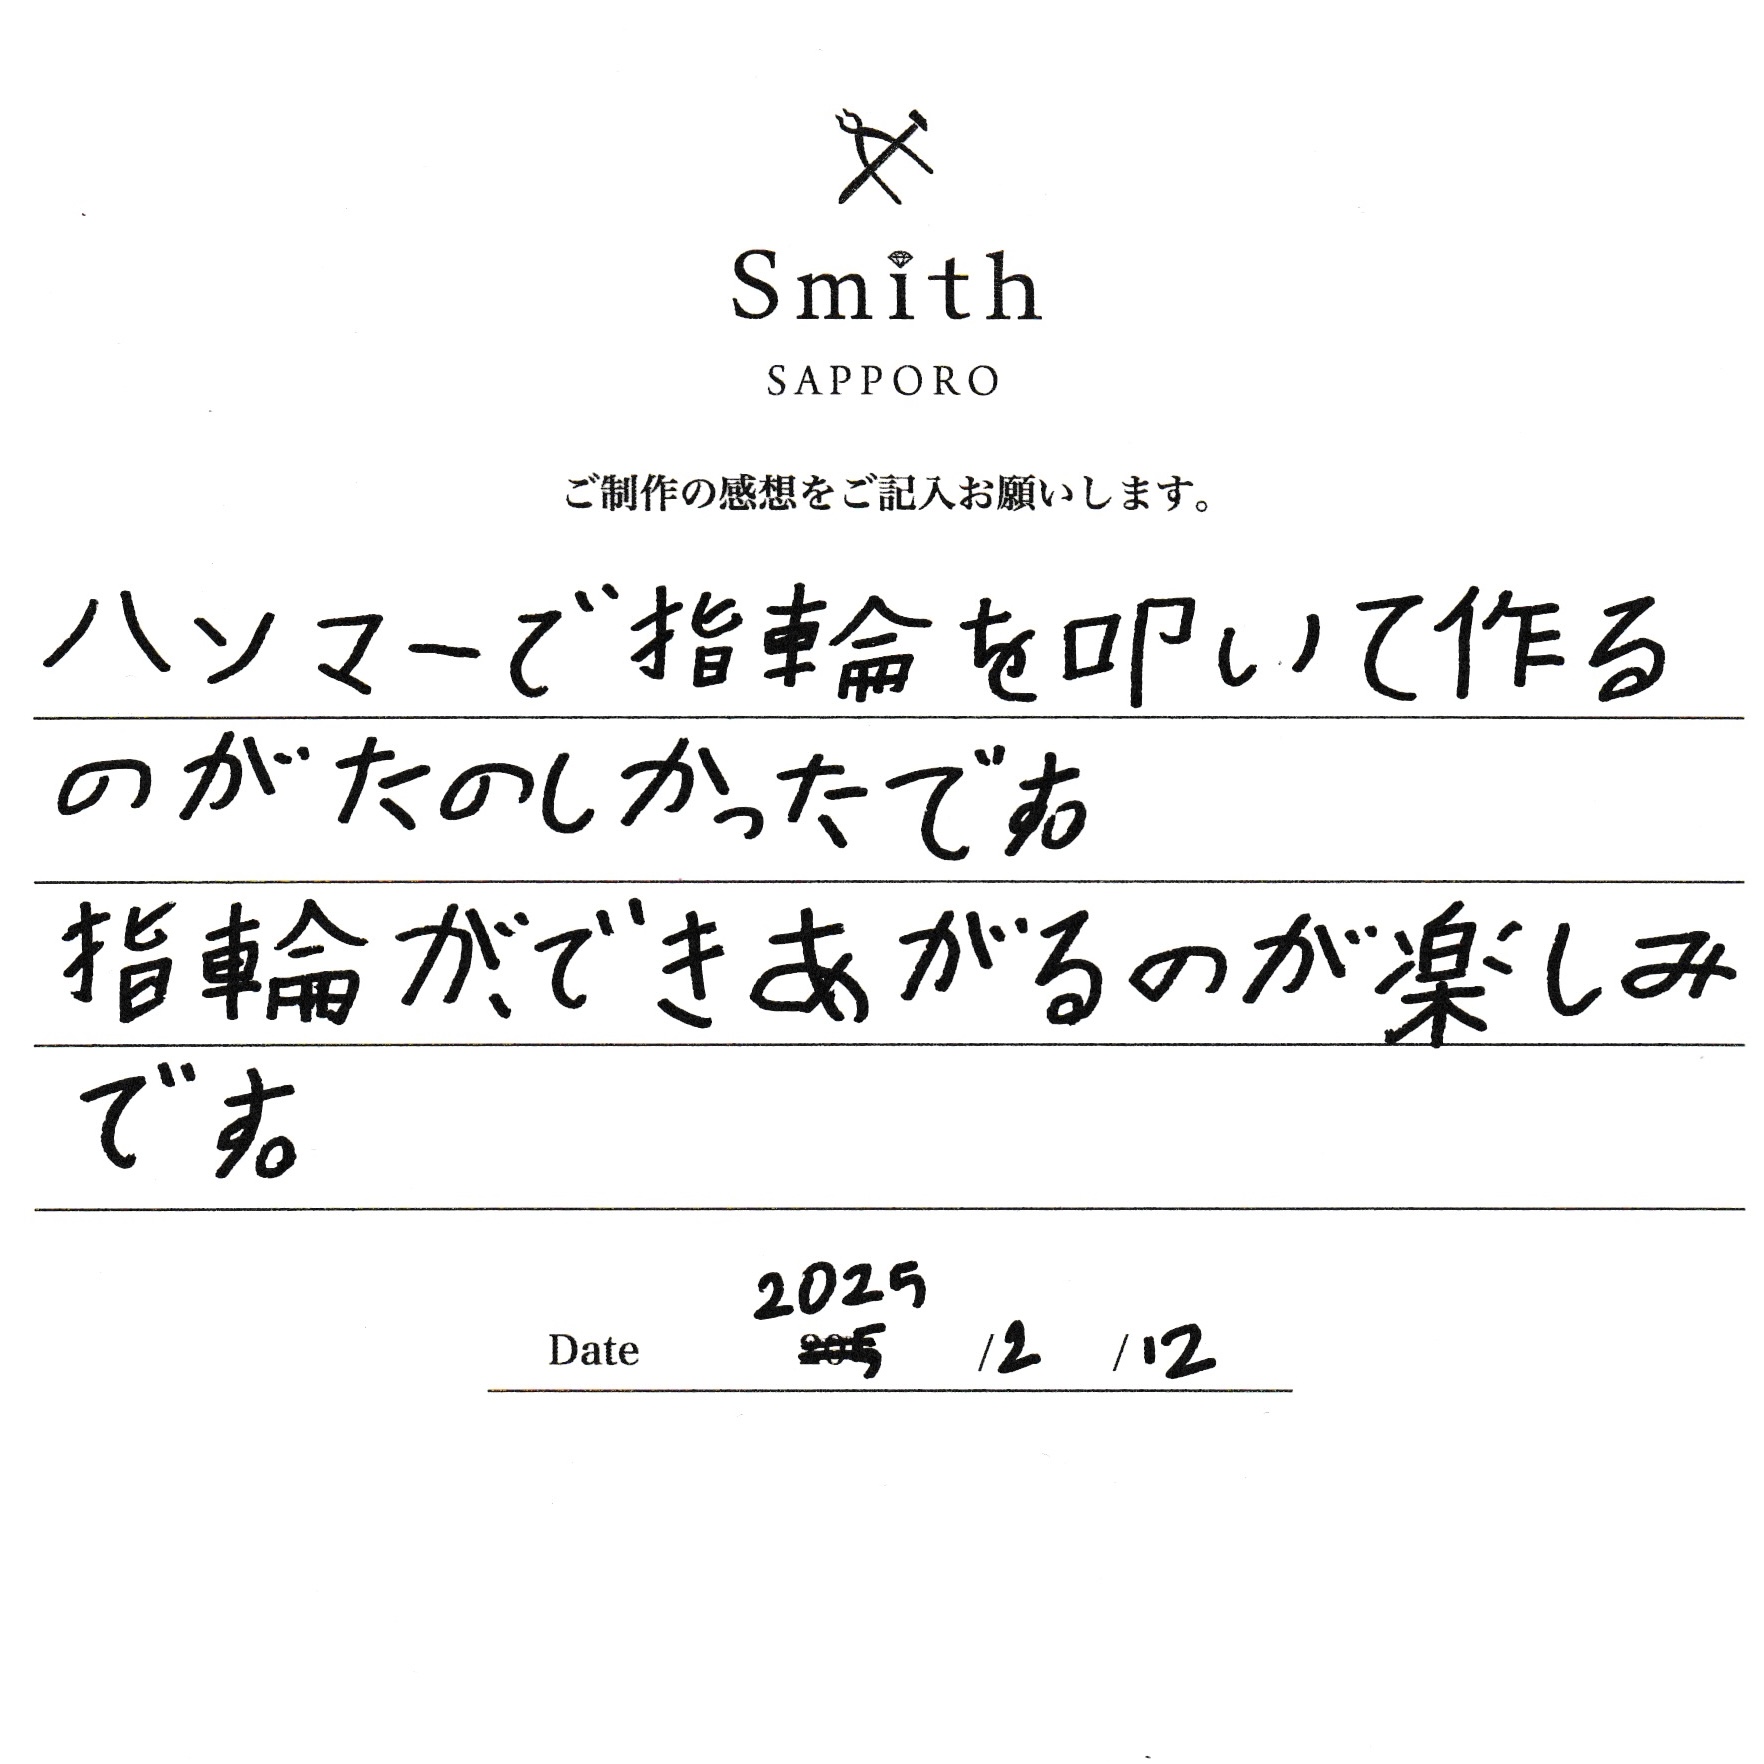 Smith
SAPPORO
ご制作の感想をご記入お願いします。
ハンマーで指輪を叩いて作る
のがたのしかったです。
指輪が、できあがるのが楽しみ
です。
2025
Date /2 /12